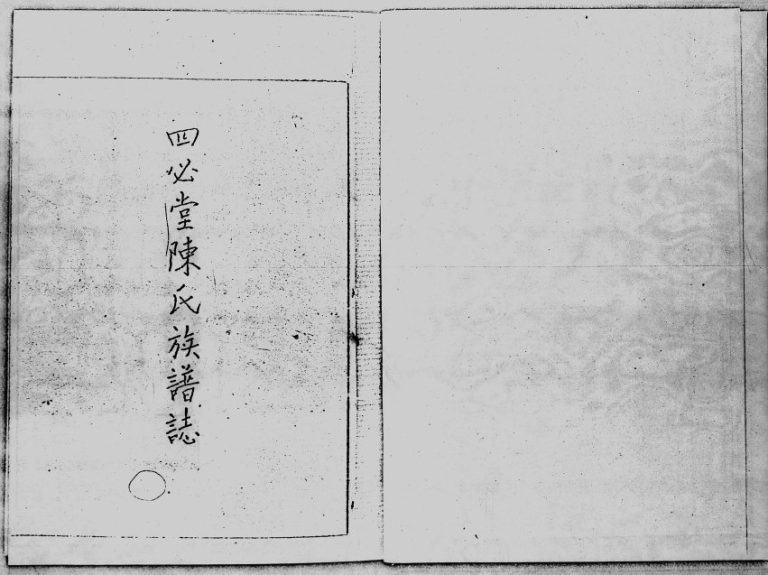 四必堂陳氏族譜誌